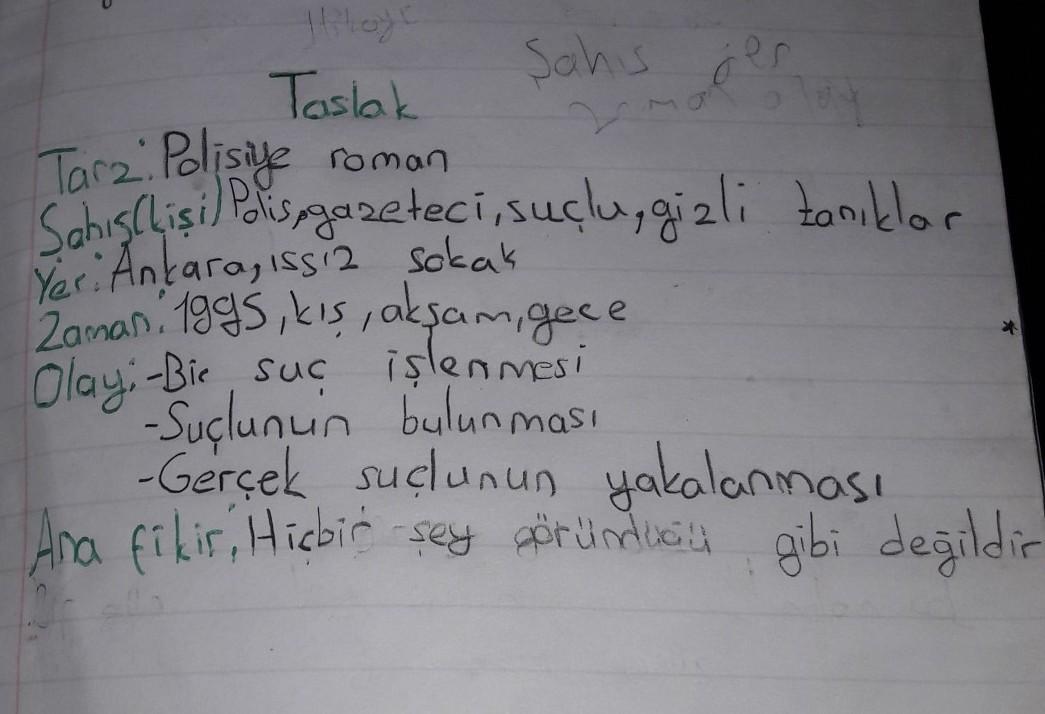 Hikaye
Şahıs yer
zaman olay
Taslak
Tarz: Polisiye roman
Şahıs(kişi) Polis, gazeteci, suçlu, gizli tanıklar
Yer: Ankara, ıssız sokak
Zaman: 1995, kış, akşam, gece
Olay: -Bir suç işlenmesi
-Suçlunun bulunması
-Gerçek suçlunun yakalanması
Ana fikir: Hiçbir şey göründüğü gibi değildir